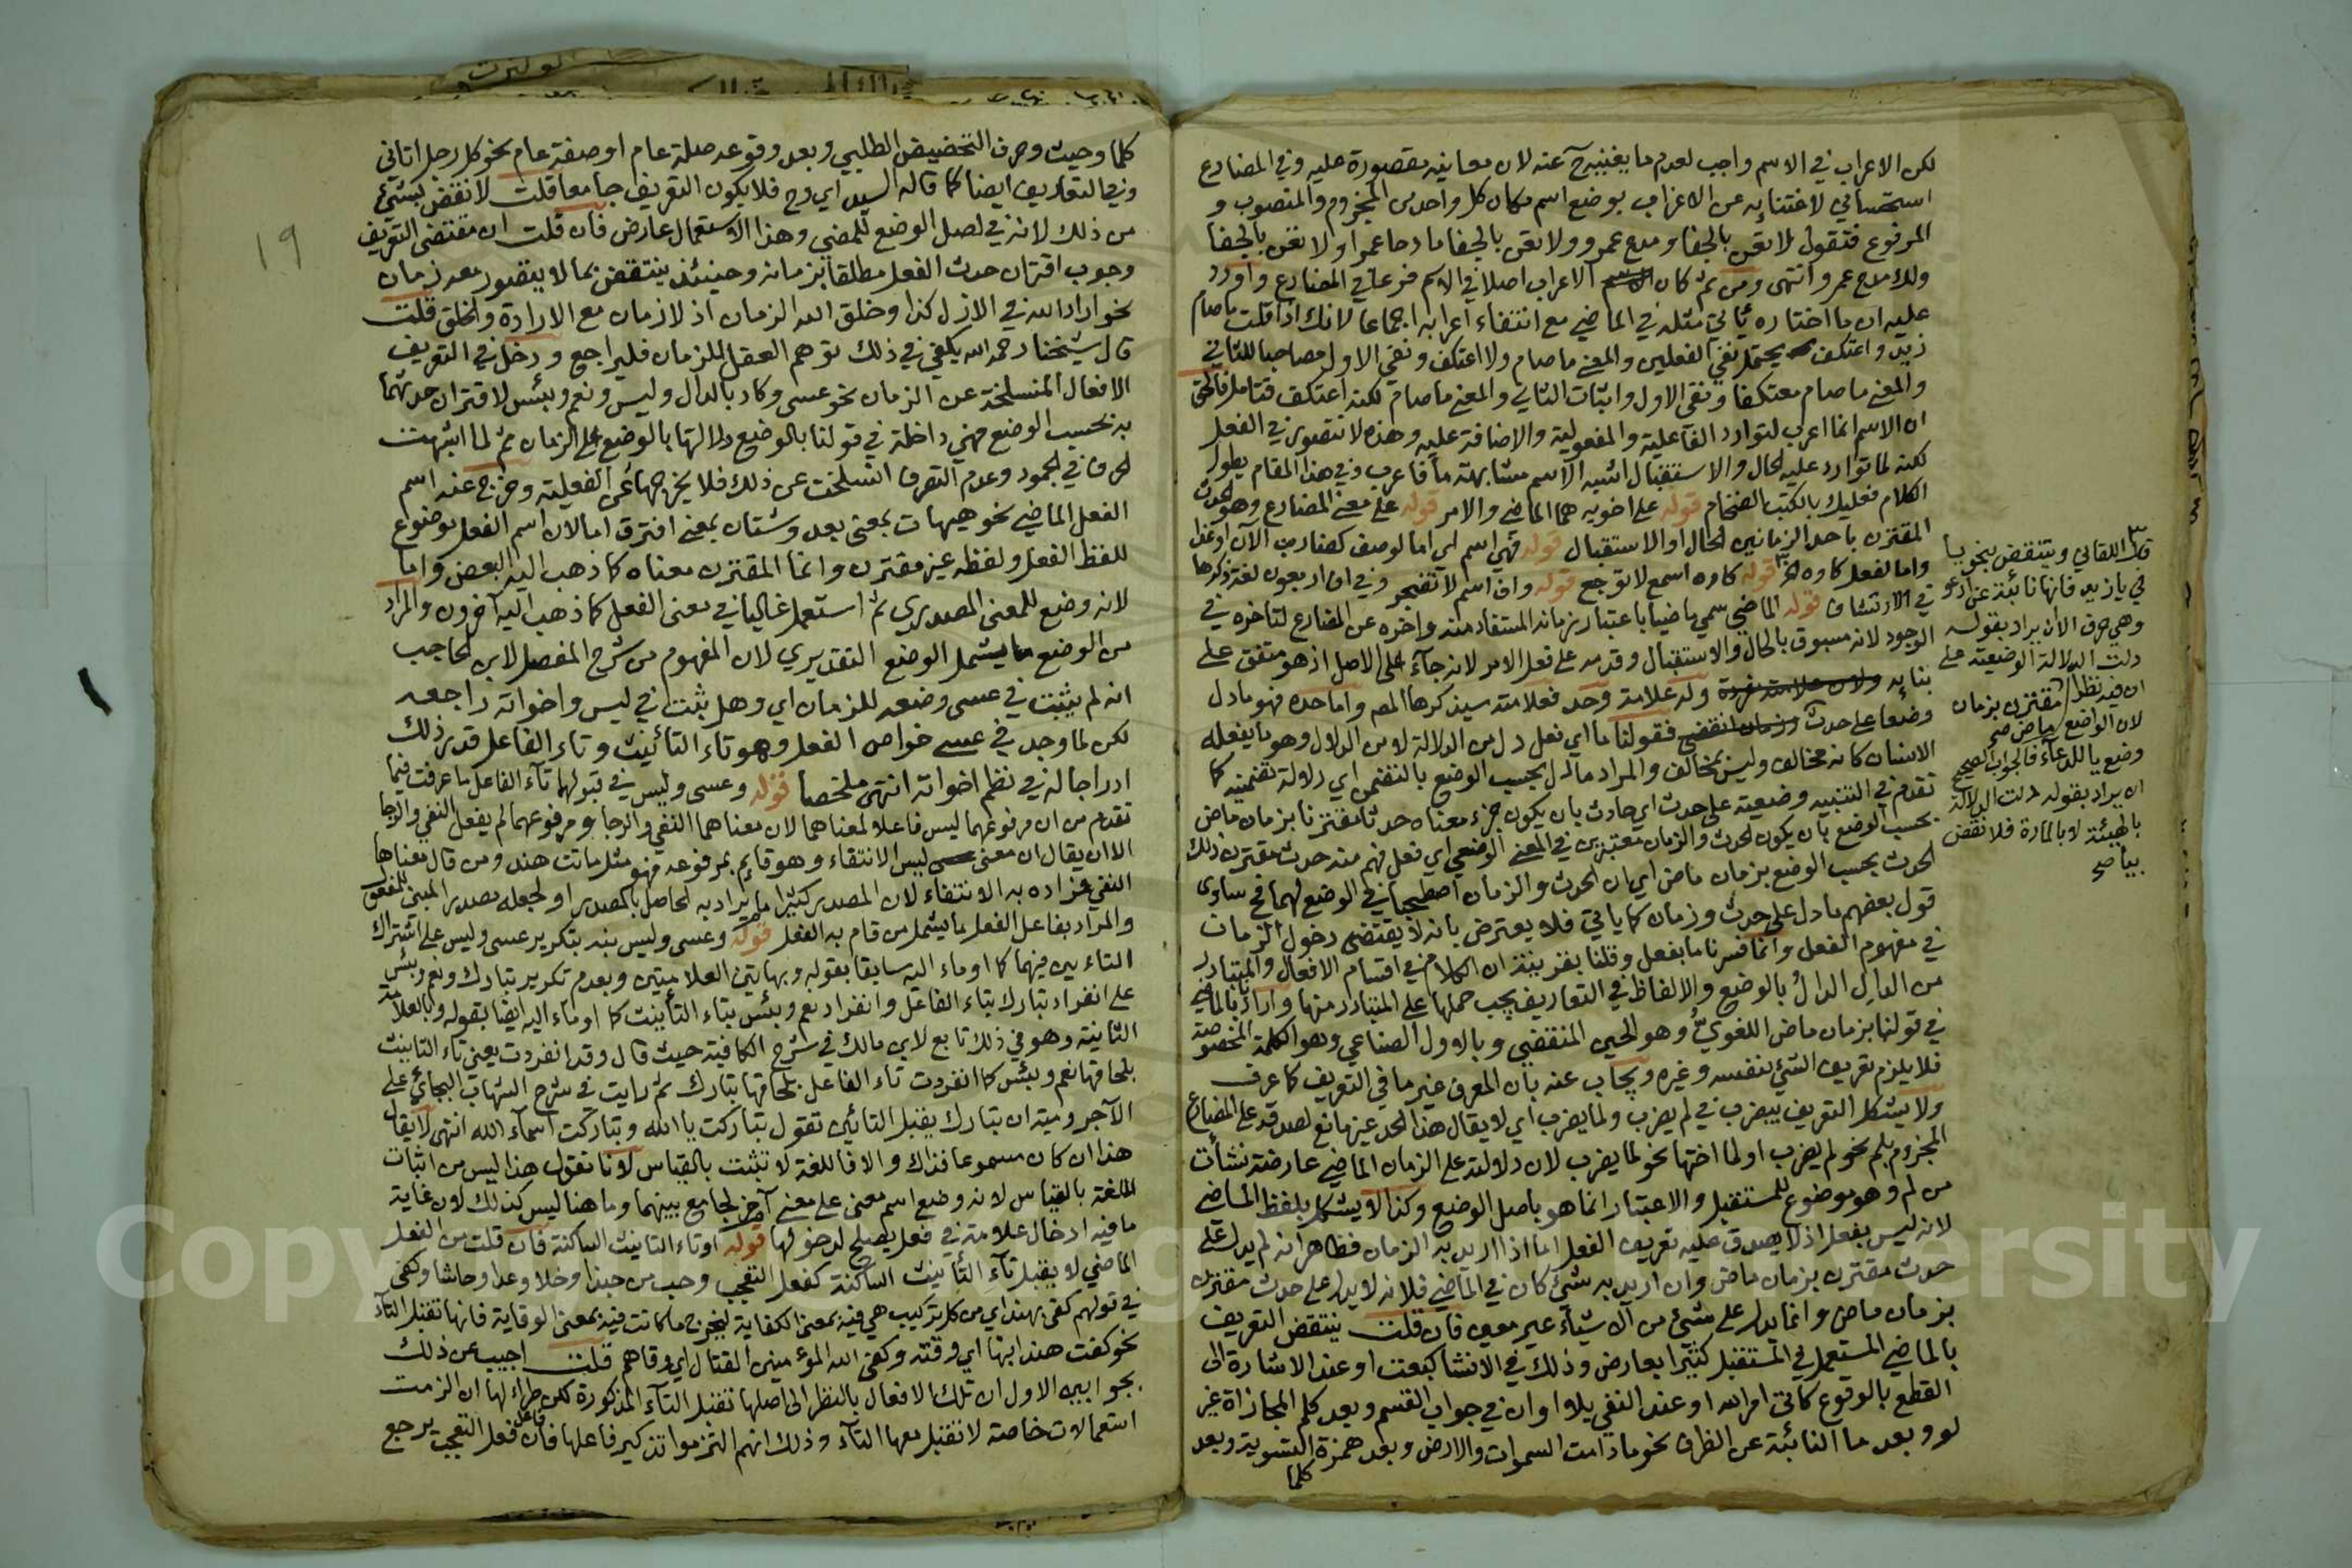 لكن الاعراب في الاسم واجب لعدم ما يغنيه عنه لان معانيه مقصورة عليه وفي المضارع
استحساني لاغتنائه عن الاعراب بوضع اسم مكان كل واحد من المجزوم والمنصوب و
المرفوع فتقول لا تعن بالجفا ومدح عمرو ولا تعن بالجفا مادحا عمرا ولا تعن بالجفا
ولك مدح عمرو انتهى ومن ثم كان الاعراب اصلا في الاسم فرعا في المضارع واورد
عليه ان ما اختاره ياتي مثله في الماضي مع انتفاء اعرابه اجماعا لانك اذا قلت ما صام
زيد واعتكف يحتمل نفي الفعلين والمعنى ما صام ولا اعتكف ونفي الاول مصاحبا للثاني
والمعنى ما صام معتكفا ونفي الاول واثبات الثاني والمعنى ما صام لكنه اعتكف فتامل فالحق
ان الاسم انما اعرب لتوارد الفاعلية والمفعولية والاضافة عليه وهذه لا تتصور في الفعل
لكنه لما توارد عليه الحال والاستقبال اشبه الاسم مشابهة ما فاعرب وفي هذا المقام يطول
الكلام فعليك بالكتب الضخام قوله على اخويه هما الماضي والامر قوله على معنى المضارع وهو الحدث
المقترن باحد الزمانين الحال او الاستقبال قوله فهي اسم اي اما لوصف كضارب الآن او غدا
واما لفعل كاوه الخ قوله كاوه اسمع لاتوجع قوله واف اسم لاتضجر وفي اف اربعون لغة ذكرها
في الارتشاف قوله الماضي سمي ماضيا باعتبار زمانه المستفاد منه واخره عن المضارع لتاخره في
الوجود لانه مسبوق بالحال والاستقبال وقدمه على فعل الامر لانه جآء على الاصل اذ هو متفق على
بنائه وله علامة وحد فعلامته سيذكرها المص واما حده فهو ما دل
وضعا على حدث وزمان انقضى فقولنا ما اي فعل دل من الدلالة لا من الدلال وهو ما يفعله
الانسان كانه مخالف وليس بمخالف والمراد ما دل بحسب الوضع بالتضمن اي دلالة تضمنية كما
تقدم في التنبيه وضعية على حدث اي حادث بان يكون جزء معناه حدثا مقترنا بزمان ماض
بحسب الوضع بان يكون الحدث والزمان معتبرين في المعنى الوضعي اي فعل فهم منه حدث مقترن ذلك
الحدث بحسب الوضع بزمان ماض اي ان الحدث والزمان اصطحبا في الوضع لهما فح ساوى
قول بعضهم ما دل على حدث وزمان كما ياتي فلا يعترض بانه لا يقتضي دخول الزمان
في مفهوم الفعل وانما فسرنا ما بفعل وقلنا بقرينة ان الكلام في اقسام الافعال والمتبادر
من الدال الدال بالوضع والالفاظ في التعاريف يجب حملها على المتبادر منها واراد بالماضي
في قولنا بزمان ماض اللغوي وهو الحين المنقضي وبالاول الصناعي وهو الكلمة المخصوصة
فلا يلزم تعريف الشيء بنفسه وغيره ويجاب عنه بان المعرف غير ما في التعريف كما عرف
ولا يشكل التعريف بيضرب في لم يضرب ولما يضرب اي لا يقال هذا الحد غير مانع لصدقه على المضارع
المجزوم بلم نحو لم يضرب او لما اختها نحو لما يضرب لان دلالته على الزمان الماضي عارضة نشأت
من لم وهو موضوع للمستقبل والاعتبار انما هو باصل الوضع وكذا لا يشكل بلفظ الماضي
لانه ليس بفعل اذ لا يصدق عليه تعريف الفعل اما اذا اريد به الزمان فظاهر انه لم يدل على
حدث مقترن بزمان ماض وان اريد به شيء كان في الماضي فلانه لا يدل على حدث مقترن
بزمان ماض وانما يدل على شيء من الاشياء غير معين فان قلت ينتقض التعريف
بالماضي المستعمل في المستقبل كثيرا بعارض وذلك في الانشا كبعت او عند الاشارة الى
القطع بالوقوع كاتى امر الله او عند النفي بلا او ان في جواب القسم وبعد كلم المجازاة غير
لو وبعد ما النائبة عن الظرف نحو ما دامت السموات والارض وبعد همزة التسوية وبعد
كلما
قال اللقاني وينتقض بنحو يا
في يا زيد فانها نائبة عن ادعو
وهي حرف الا ان يراد بقوله
دلت الدلالة الوضعية على
ان فيه نظرا مقترن بزمان
لان الواضع ماض صح
وضع يا للدعاء فالجواب الصحيح
ان يراد بقوله دلت الدلالة
بالهيئة لا بالمادة فلا نقض
بيا صح
١٩
كلما وحيث وحرف التحضيض الطلبي وبعد وقوعه صلة عام او صفة عام نحو كل رجل اتاني
وفي التعاريف ايضا كما قاله السيد اي وح فلا يكون التعريف جامعا قلت لا نقض بشيء
من ذلك لانه في اصل الوضع للمضي وهذا الاستعمال عارض فان قلت ان مقتضى التعريف
وجوب اقتران حدث الفعل مطلقا بزمانه وحينئذ ينتقض بما لا يتصور معه زمان
نحو اراد الله في الازل كذا وخلق الله الزمان اذ لا زمان مع الارادة والخلق قلت
قال شيخنا رحمه الله يكفي في ذلك توهم العقل للزمان فليراجع ودخل في التعريف
الافعال المنسلخة عن الزمان نحو عسى وكاد بالدال وليس ونعم وبئس لاقتران حدثها
به بحسب الوضع فهي داخلة في قولنا بالوضع دلالتها بالوضع على الزمان ثم لما اشبهت
الحرف في الجمود وعدم التصرف انسلخت عن ذلك فلا يخرجها عن الفعلية وخرج عنه اسم
الفعل الماضي نحو هيهات بمعنى بعد وشتان بمعنى افترق اما لان اسم الفعل موضوع
للفظ الفعل ولفظه غير مقترن وانما المقترن معناه كما ذهب اليه البعض واما
لانه وضع للمعنى المصدري ثم استعمل غالبا في معنى الفعل كما ذهب اليه آخرون والمراد
من الوضع ما يشمل الوضع التقديري لان المفهوم من شرح المفصل لابن الحاجب
انه لم يثبت في عسى وضعه للزمان اي وهل يثبت في ليس واخواته راجعه
لكن لما وجد في عسى خواص الفعل وهو تاء التأنيث وتاء الفاعل قدر ذلك
ادراجا له في نظم اخواته انتهى ملخصا قوله وعسى وليس في قبولهما تآء الفاعل ما عرفت فيما
تقدم من ان مرفوعهما ليس فاعلا لمعناهما لان معناهما النفي والرجا ومرفوعهما لم يفعل النفي والرجا
الا ان يقال ان معنى ليس الانتفاء وهو قائم بمرفوعه فهو مثل ماتت هند ومن قال معناها
النفي فمراده به الانتفاء لان المصدر كثيرا ما يراد به الحاصل بالمصدر او لجعله مصدر المبني للمفعول
والمراد بفاعل الفعل ما يشمل من قام به الفعل قوله وعسى وليس نبه بتكرير عسى وليس على اشتراك
التاءين فيهما كما اوماء اليه سابقا بقوله وبهاتين العلامتين وبعدم تكرير تبارك ونعم وبئس
على انفراد تبارك بتاء الفاعل وانفراد نعم وبئس بتاء التأنيث كما اوماء اليه ايضا بقوله وبالعلامة
الثانية وهو في ذلك تابع لابن مالك في شرح الكافية حيث قال وقد انفردت يعني تاء التانيث
بلحاقها نعم وبئس كما انفردت تاء الفاعل بلحاقها تبارك ثم رايت في شرح الشهاب البجائي على
الآجرومية ان تبارك يقبل التائين تقول تباركت يا الله وتباركت اسمآء الله انتهى لا يقال
هذا ان كان مسموعا فذاك والا فاللغة لا تثبت بالقياس لانا نقول هذا ليس من اثبات
اللغة بالقياس لانه وضع اسم معنى على معنى آخر لجامع بينهما وما هنا ليس كذلك لان غاية
ما فيه ادخال علامة في فعل يصلح لدخولها قوله او تاء التانيث الساكنة فان قلت من الفعل
الماضي لا يقبل تآء التأنيث الساكنة كفعل التعجب وحب من حبذا وخلا وعدا وحاشا وكفى
في قولهم كفى بهند اي من كل تركيب هي فيه بمعنى الكفاية ليخرج ما كانت فيه بمعنى الوقاية فانها تقبل التآء
نحو كفت هند ابنها اي وقته وكفى الله المؤمنين القتال اي وقاهم قلت اجيب عن ذلك
بجوابين الاول ان تلك الافعال بالنظر الى اصلها تقبل التآء المذكورة لكن طراء لها ان الزمت
استعمالات خاصة لا تقبل معها التآء وذلك انهم التزموا تذكير فاعلها فان فاعل فعل التعجب يرجع